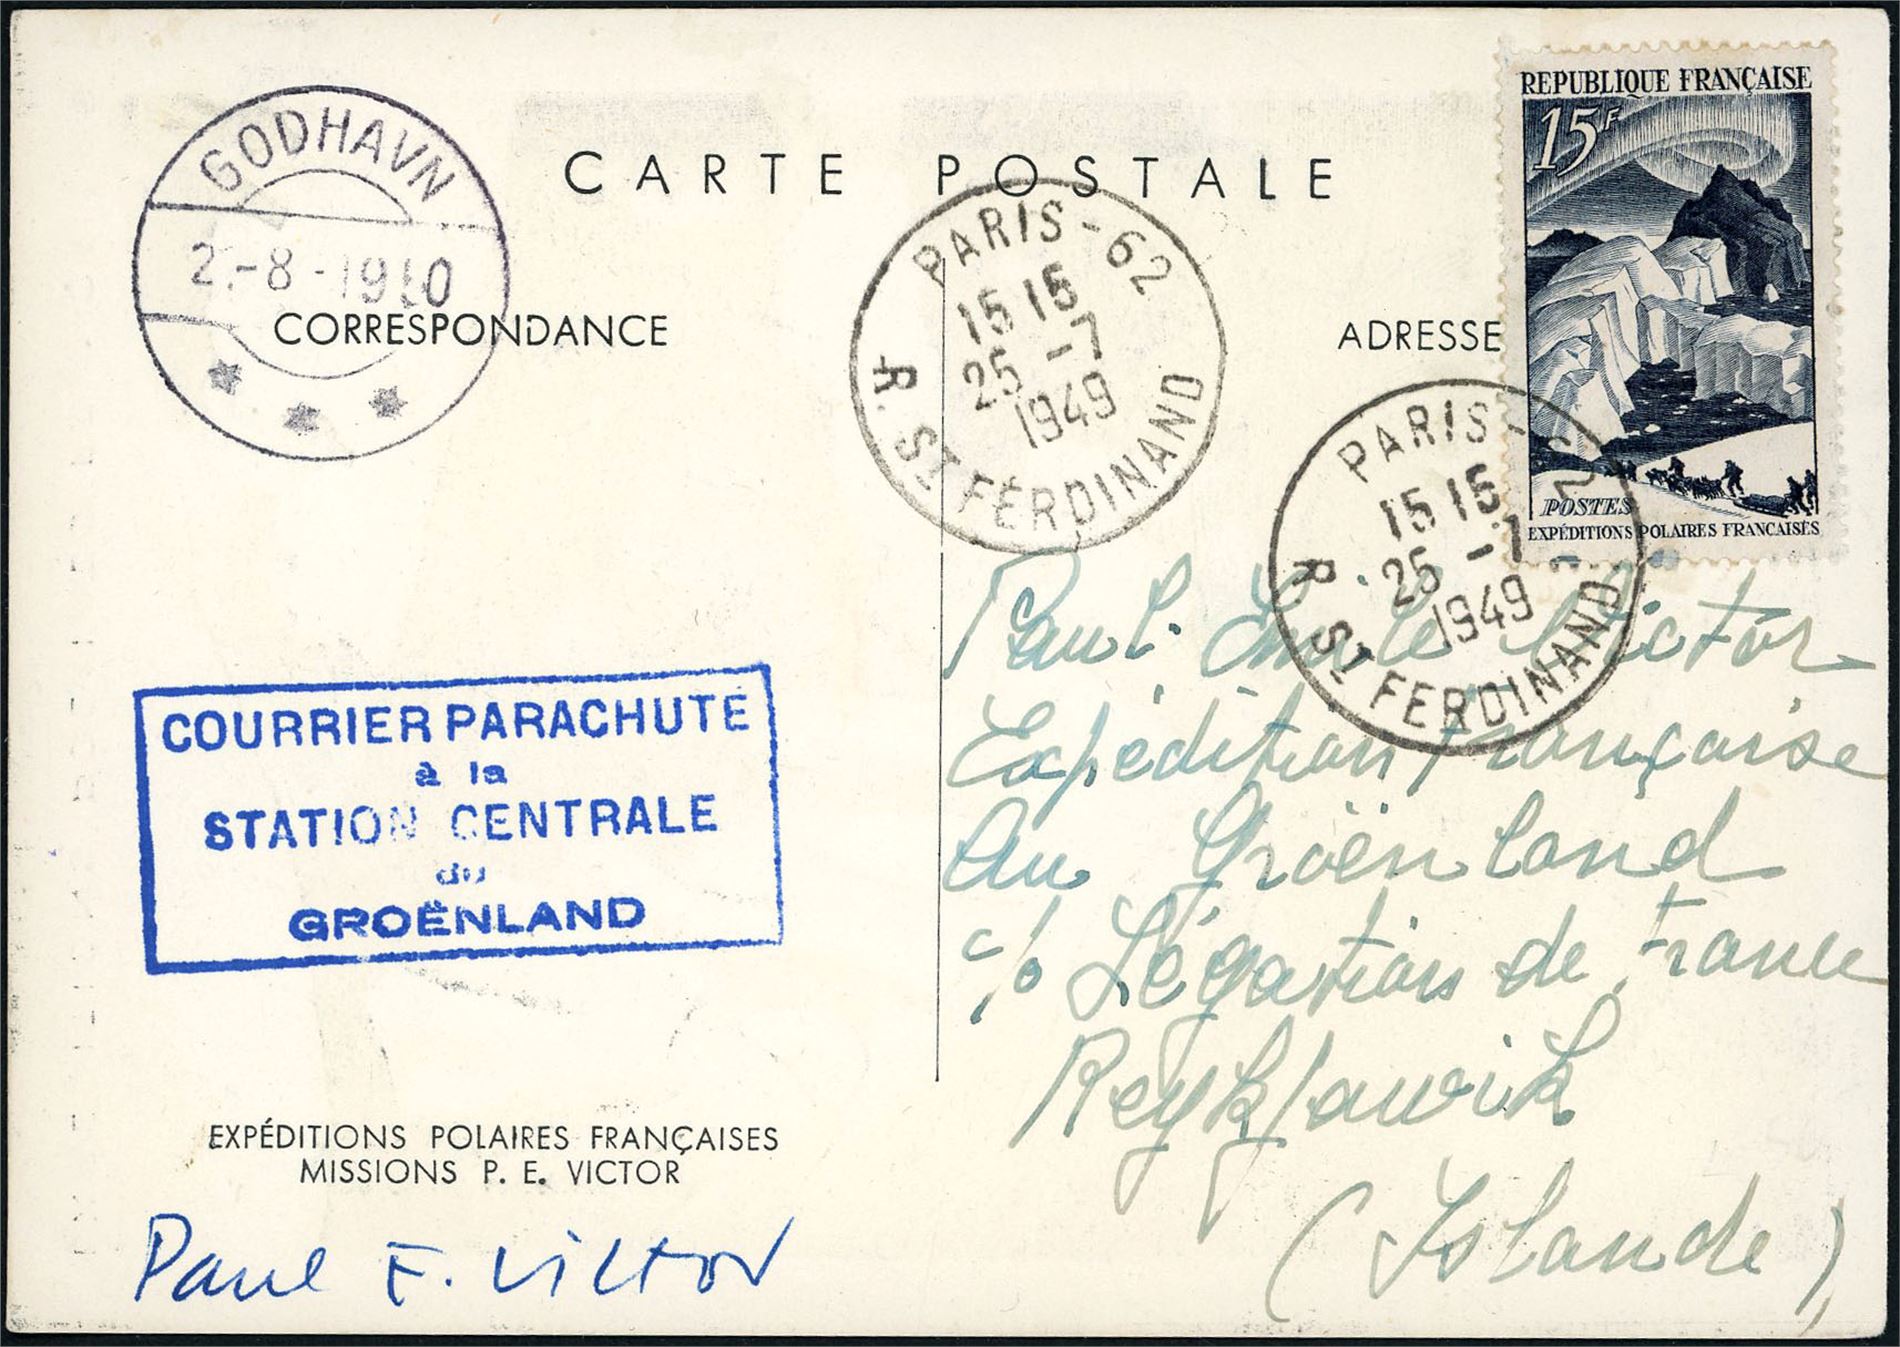 REPUBLIQUE FRANÇAISE
15F
GODHAVN
CARTE POSTALE
PARIS-62
15 15
25 -7
1949
R. ST FERDINAND
2.-8-19 0
CORRESPONDANCE
ADRESSE
PARIS-62
15 15
25 -7
1949
R ST FERDINAND
POSTES
EXPÉDITIONS POLAIRES FRANÇAISES
Paul. Emile Victor
Expédition Française
Au Groënland
c/o Légation de France
Reykjawik
(Islande)
COURRIER PARACHUTÉ
à la
STATION CENTRALE
du
GROËNLAND
EXPÉDITIONS POLAIRES FRANÇAISES
MISSIONS P. E. VICTOR
Paul E. Victor